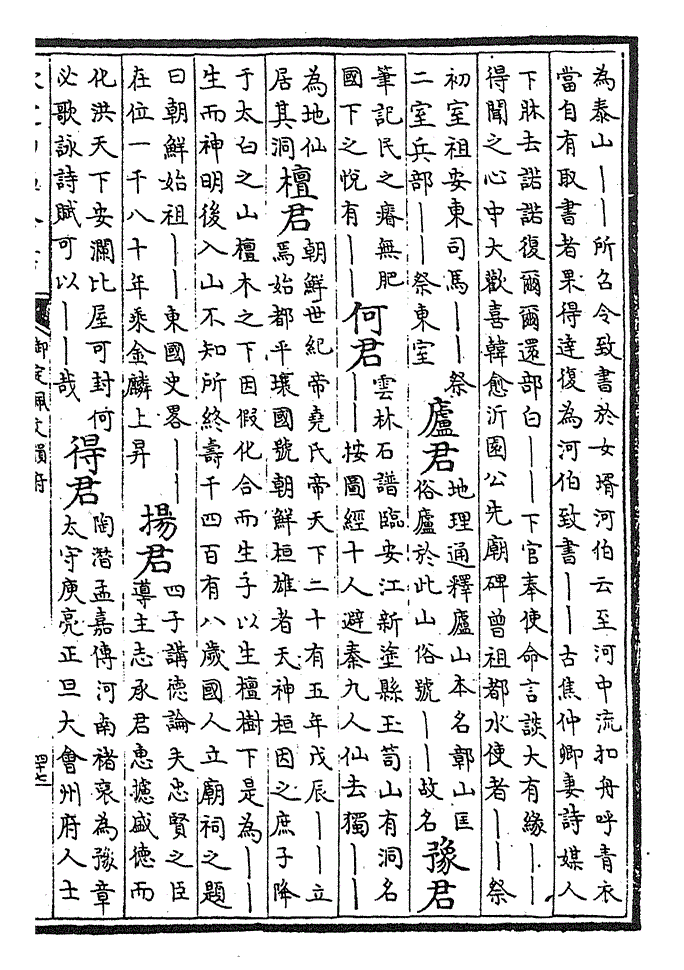 為泰山｜｜所召令致書於女壻河伯云至河中流扣舟呼青衣
當自有取書者果得達復為河伯致書｜｜古焦仲卿妻詩媒人
下牀去諾諾復爾爾還部白｜｜下官奉使命言談大有緣｜｜
得聞之心中大歡喜韓愈沂國公先廟碑曾祖都水使者｜｜祭
初室祖安東司馬｜｜祭
二室兵部｜｜祭東室
廬君
地理通釋廬山本名鄣山匡
俗廬於此山俗號｜｜故名
豫君
筆記民之瘠無肥
國下之悅有｜｜
何君
雲林石譜臨安江新塗縣玉笥山有洞名
｜｜按圖經十人避秦九人仙去獨｜｜
為地仙
居其洞
檀君
朝鮮世紀帝堯氏帝天下二十有五年戊辰｜｜立
焉始都平壤國號朝鮮桓雄者天神桓因之庶子降
于太白之山檀木之下因假化合而生子以生檀樹下是為｜｜
生而神明後入山不知所終壽千四百有八歲國人立廟祠之題
曰朝鮮始祖｜｜東國史畧｜｜
在位一千八十年乘金麟上昇
揚君
四子講德論夫忠賢之臣
導主志承君惠攄盛德而
化洪天下安瀾比屋可封何
必歌詠詩賦可以｜｜哉
得君
陶潛孟嘉傳河南褚裒為豫章
太守庾亮正旦大會州府人士
御定佩文韻府